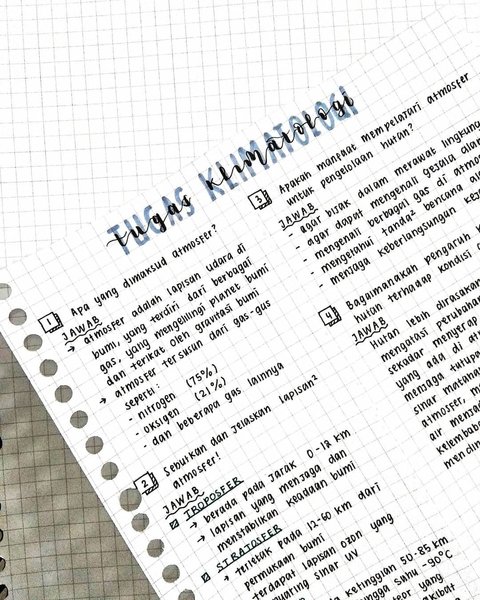 TUGAS KLIMATOLOGI
tugas klimatologi
1 Apa yang dimaksud atmosfer?
JAWAB
→ atmosfer adalah lapisan udara di
bumi, yang terdiri dari berbagai
gas, yang mengelilingi planet bumi
dan terikat oleh gravitasi bumi
→ atmosfer tersusun dari gas-gas
seperti:
- nitrogen (75%)
- oksigen (21%)
- dan beberapa gas lainnya
2 Sebutkan dan jelaskan lapisan²
atmosfer!
JAWAB
TROPOSFER
→ berada pada jarak 0-12 km
→ lapisan yang menjaga dan
menstabilkan keadaan bumi
STRATOSFER
→ terletak pada 12-60 km dari
permukaan bumi
terdapat lapisan ozon yang
sinar UV
ketinggian 50-85 km
suhu -90°C
yang
3 Apakah manfaat mempelajari atmosfer
untuk pengelolaan hutan?
JAWAB
- agar bijak dalam merawat lingkung
- agar dapat mengenali gejala alam
- mengenali berbagai gas di atmo
- mengetahui tanda² bencana al
- menjaga keberlangsungan
4 Bagaimanakah pengaruh
hutan terhadap kondisi
JAWAB
Hutan lebih dirasakan
mengatasi perubahan
sekadar menyerap
yang ada di atm
menjaga tutupa
sinar matahar
atmosfer, m
air menja
kelembaba